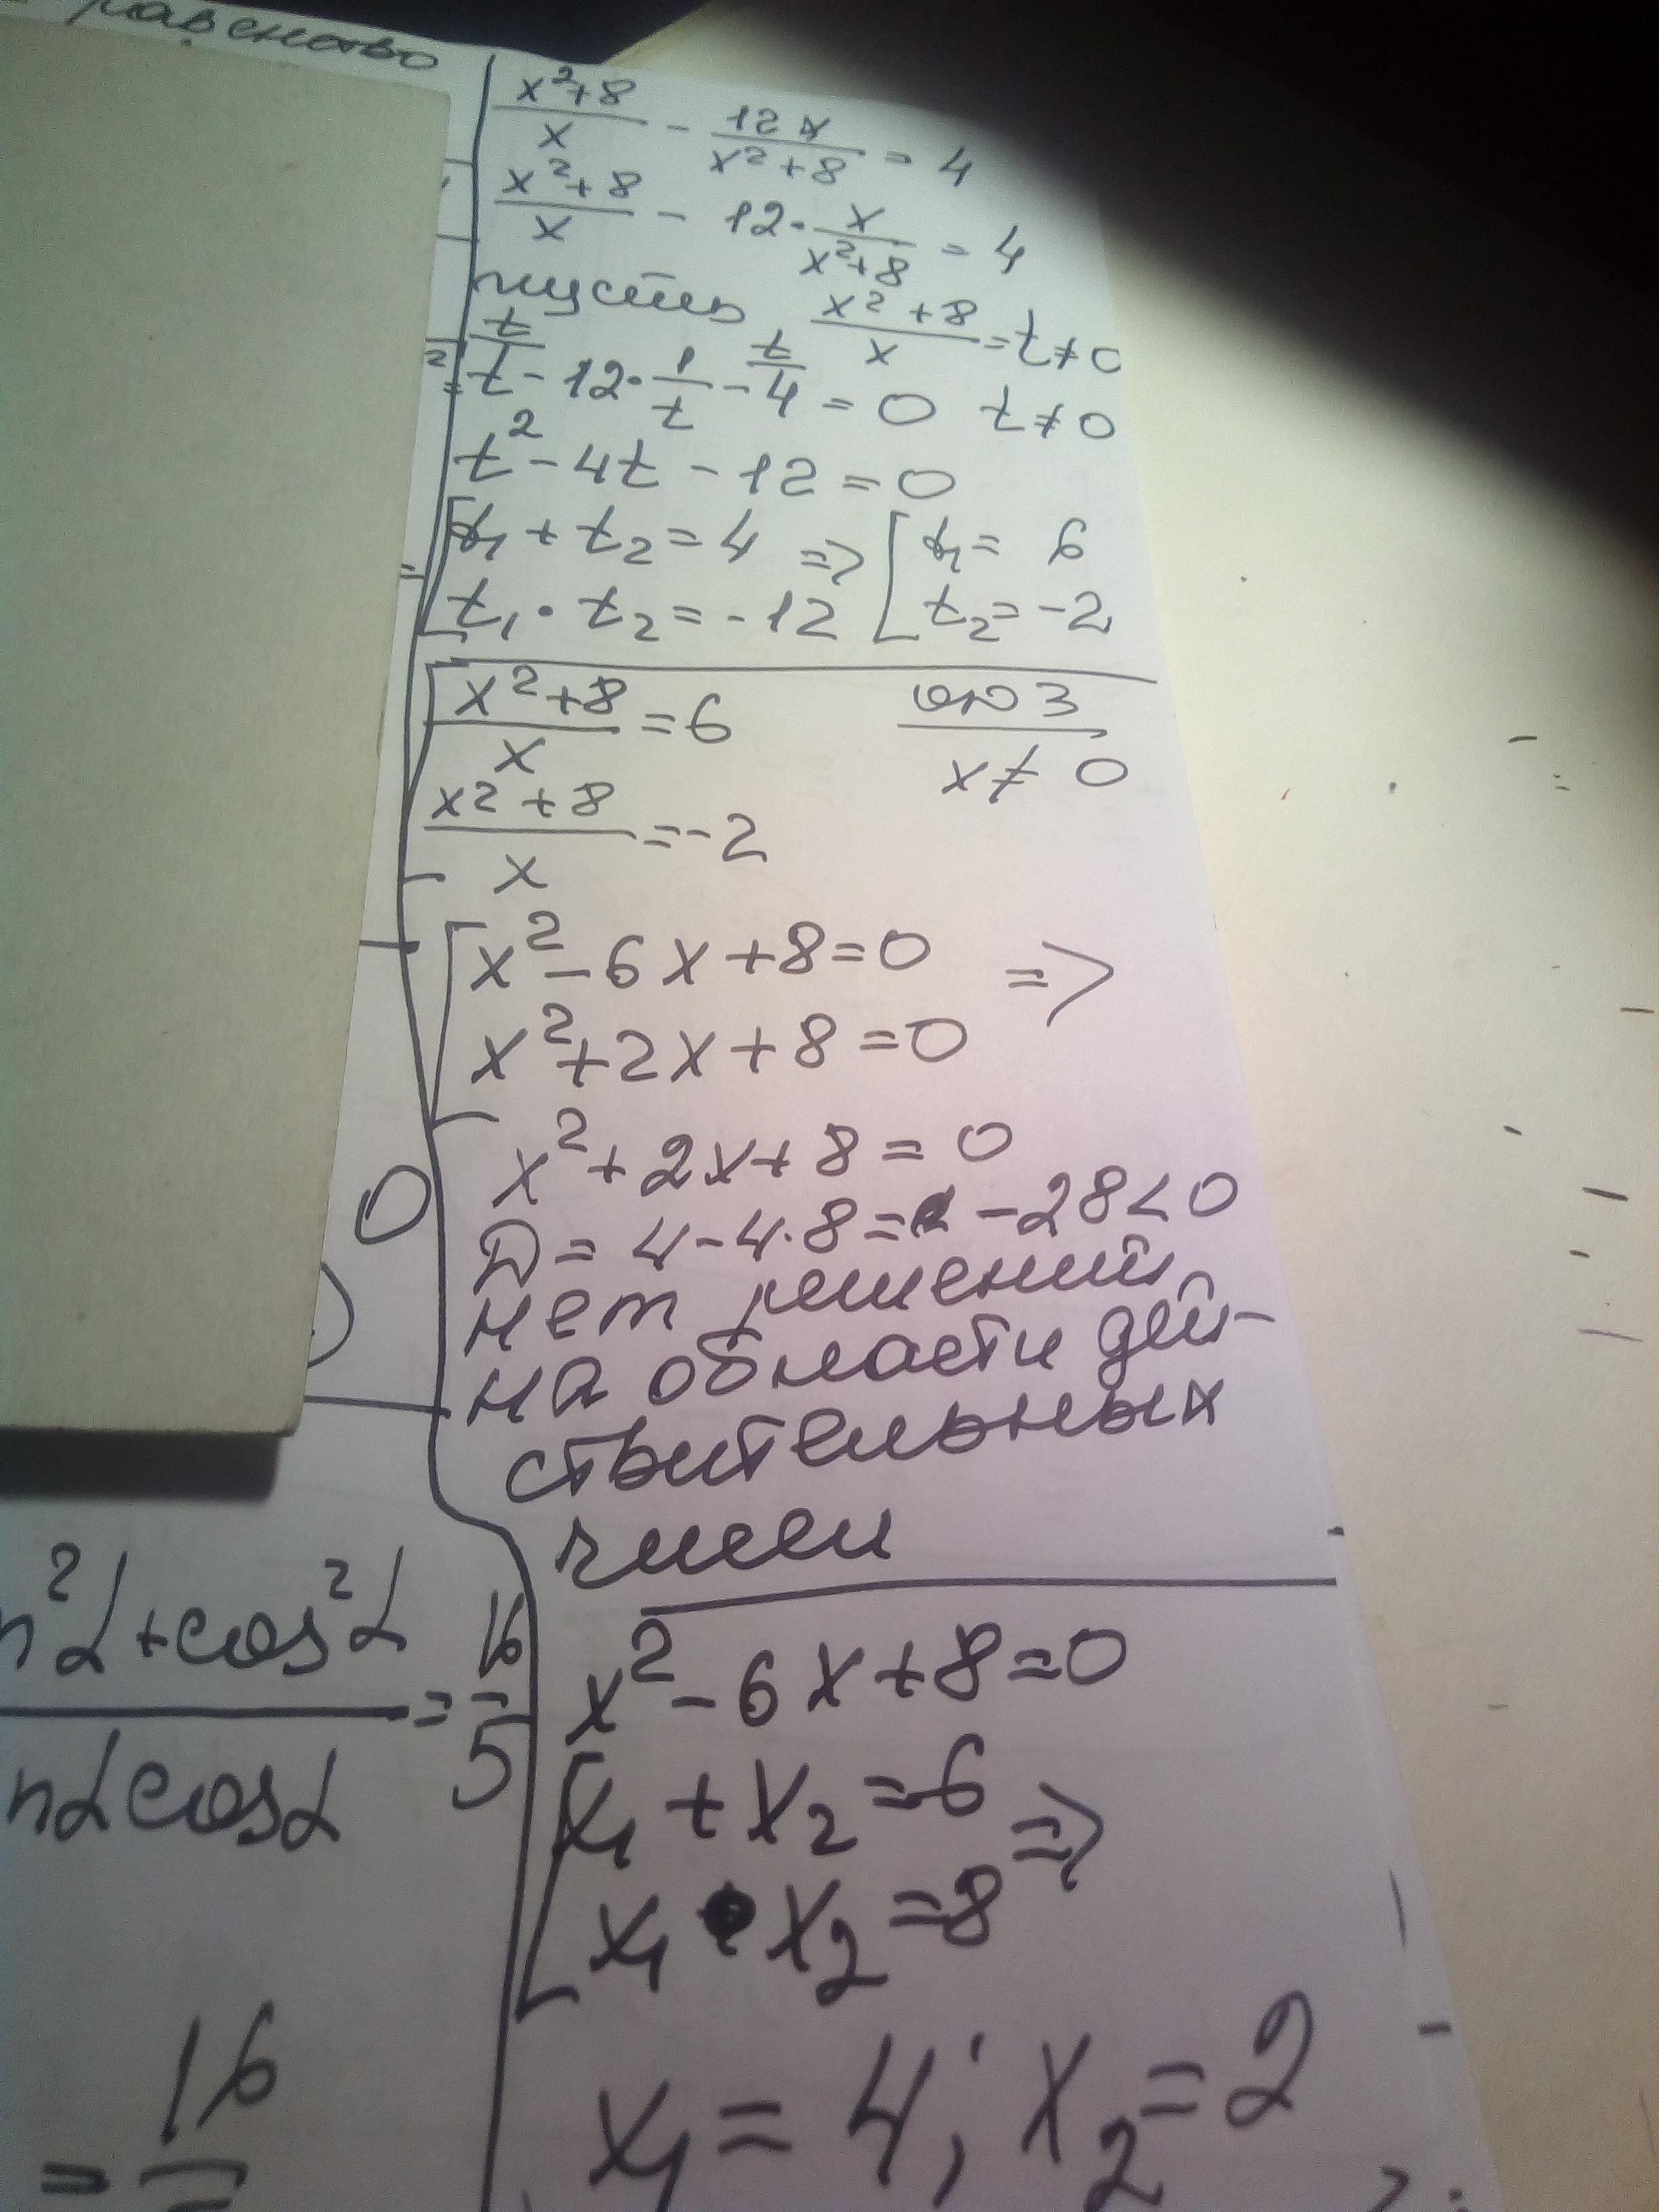 равенство
x²+8/x - 12x/x²+8 = 4
x²+8/x - 12·x/x²+8 = 4
пусть x²+8/x = t≠0
t - 12·1/t - 4 = 0 t≠0
t² - 4t - 12 = 0
t₁ + t₂ = 4 => t₁ = 6
t₁ · t₂ = -12 t₂ = -2
x²+8/x = 6 одз
x ≠ 0
x²+8/x = -2
x² - 6x + 8 = 0 =>
x² + 2x + 8 = 0
x² + 2x + 8 = 0
D = 4 - 4·8 = -28 < 0
нет решений
на области дей-
ствительных
чисел
x² - 6x + 8 = 0
x₁ + x₂ = 6 =>
x₁ · x₂ = 8
x₁ = 4; x₂ = 2
0
n²α + cos²α/nα cosα = 16/5
= 16